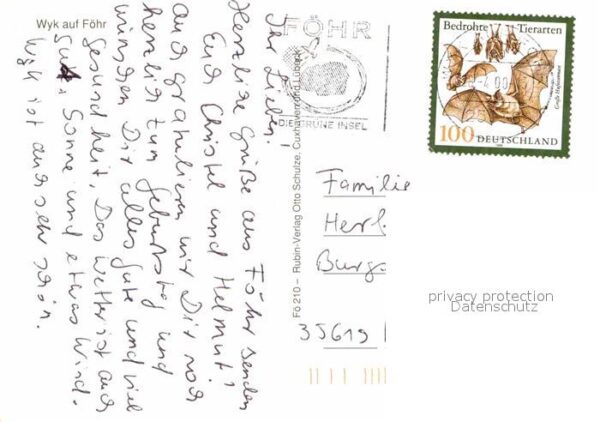 Wyk auf Föhr
Ihr Lieben!
Herzliche Grüße aus Föhr senden
Euch Christel und Helmut!
Auch gratulieren wir Dir noch
herzlich zum Geburtstag und
wünschen Dir alles Gute und viel
Gesundheit. Das Wetter ist auch
gut, Sonne und etwas Wind.
Wyk ist auch sehr schön.
Fö 210 – Rubin-Verlag Otto Schulze, Cuxhaven und Lübeck
FÖHR
DIE GRÜNE INSEL
Bedrohte Tierarten
Große Hufeisennase
100 DEUTSCHLAND
Familie
Herb
Burgs
35619
privacy protection
Datenschutz